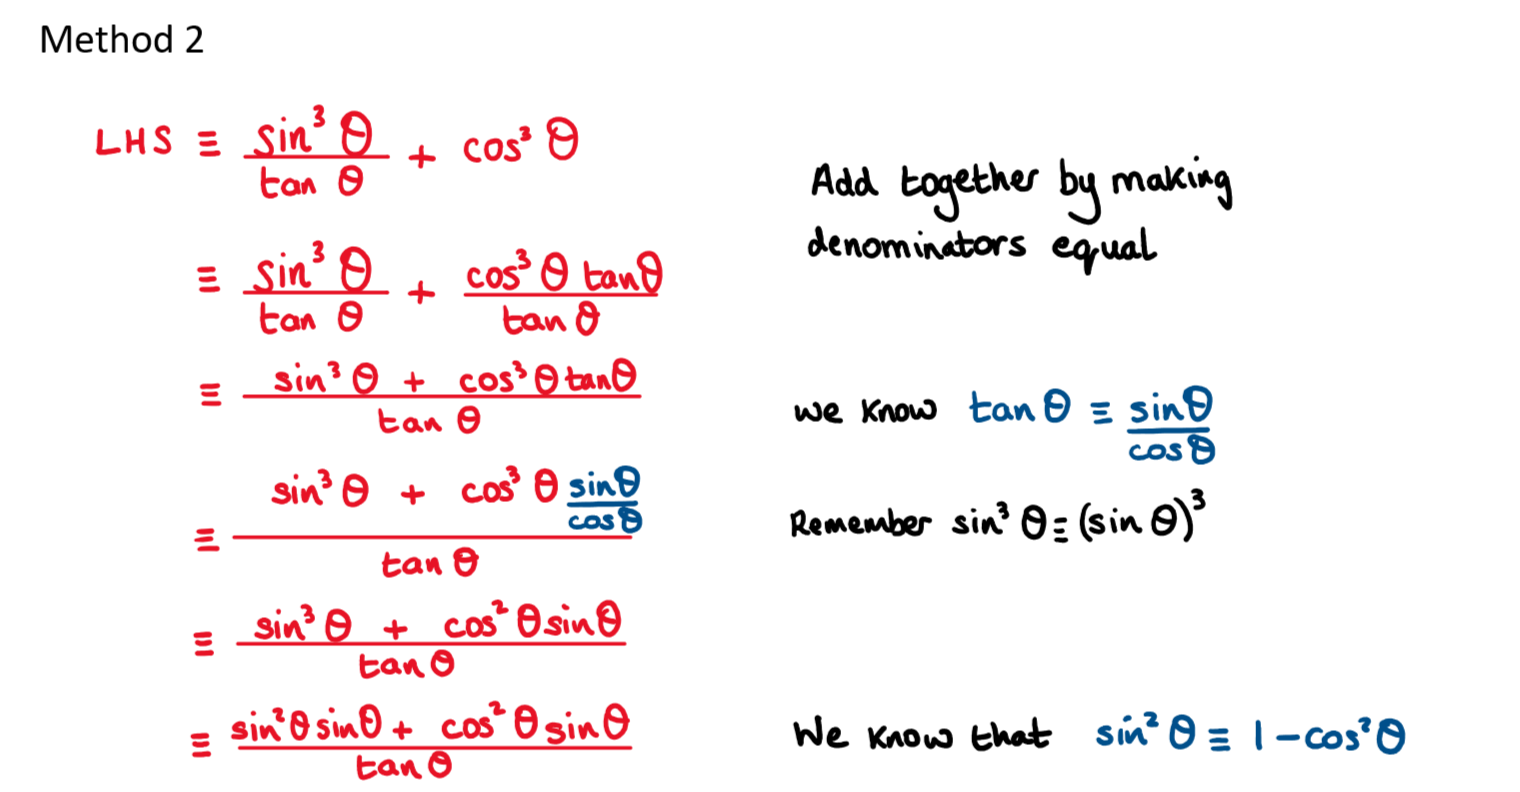 Method 2
LHS ≡ sin³θ/tan θ + cos³θ
Add together by making
denominators equal
≡ sin³θ/tan θ + cos³θ tanθ/tan θ
≡ (sin³θ + cos³θ tanθ)/tan θ
we know tan θ ≡ sinθ/cosθ
≡ (sin³θ + cos³θ sinθ/cosθ)/tan θ
Remember sin³θ ≡ (sin θ)³
≡ (sin³θ + cos²θ sinθ)/tan θ
≡ (sin²θ sinθ + cos²θ sinθ)/tan θ
We know that sin²θ ≡ 1 - cos²θ